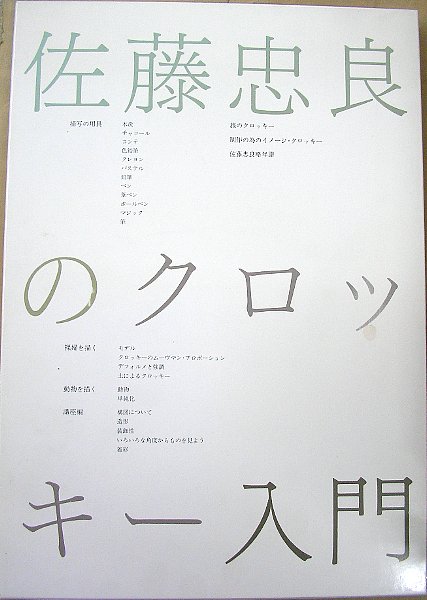 佐藤忠良
描写の用具
木炭
チャコール
コンテ
色鉛筆
クレヨン
パステル
鉛筆
ペン
筆ペン
ボールペン
マジック
筆
私のクロッキー
制作の為のイメージ・クロッキー
佐藤忠良略年譜
のクロッ
裸婦を描く
モデル
クロッキーのムーヴマン・プロポーション
デフォルメと強調
土によるクロッキー
動物を描く
動物
単純化
講座編
構図について
造形
装飾性
いろいろな角度からものを見よう
キー入門